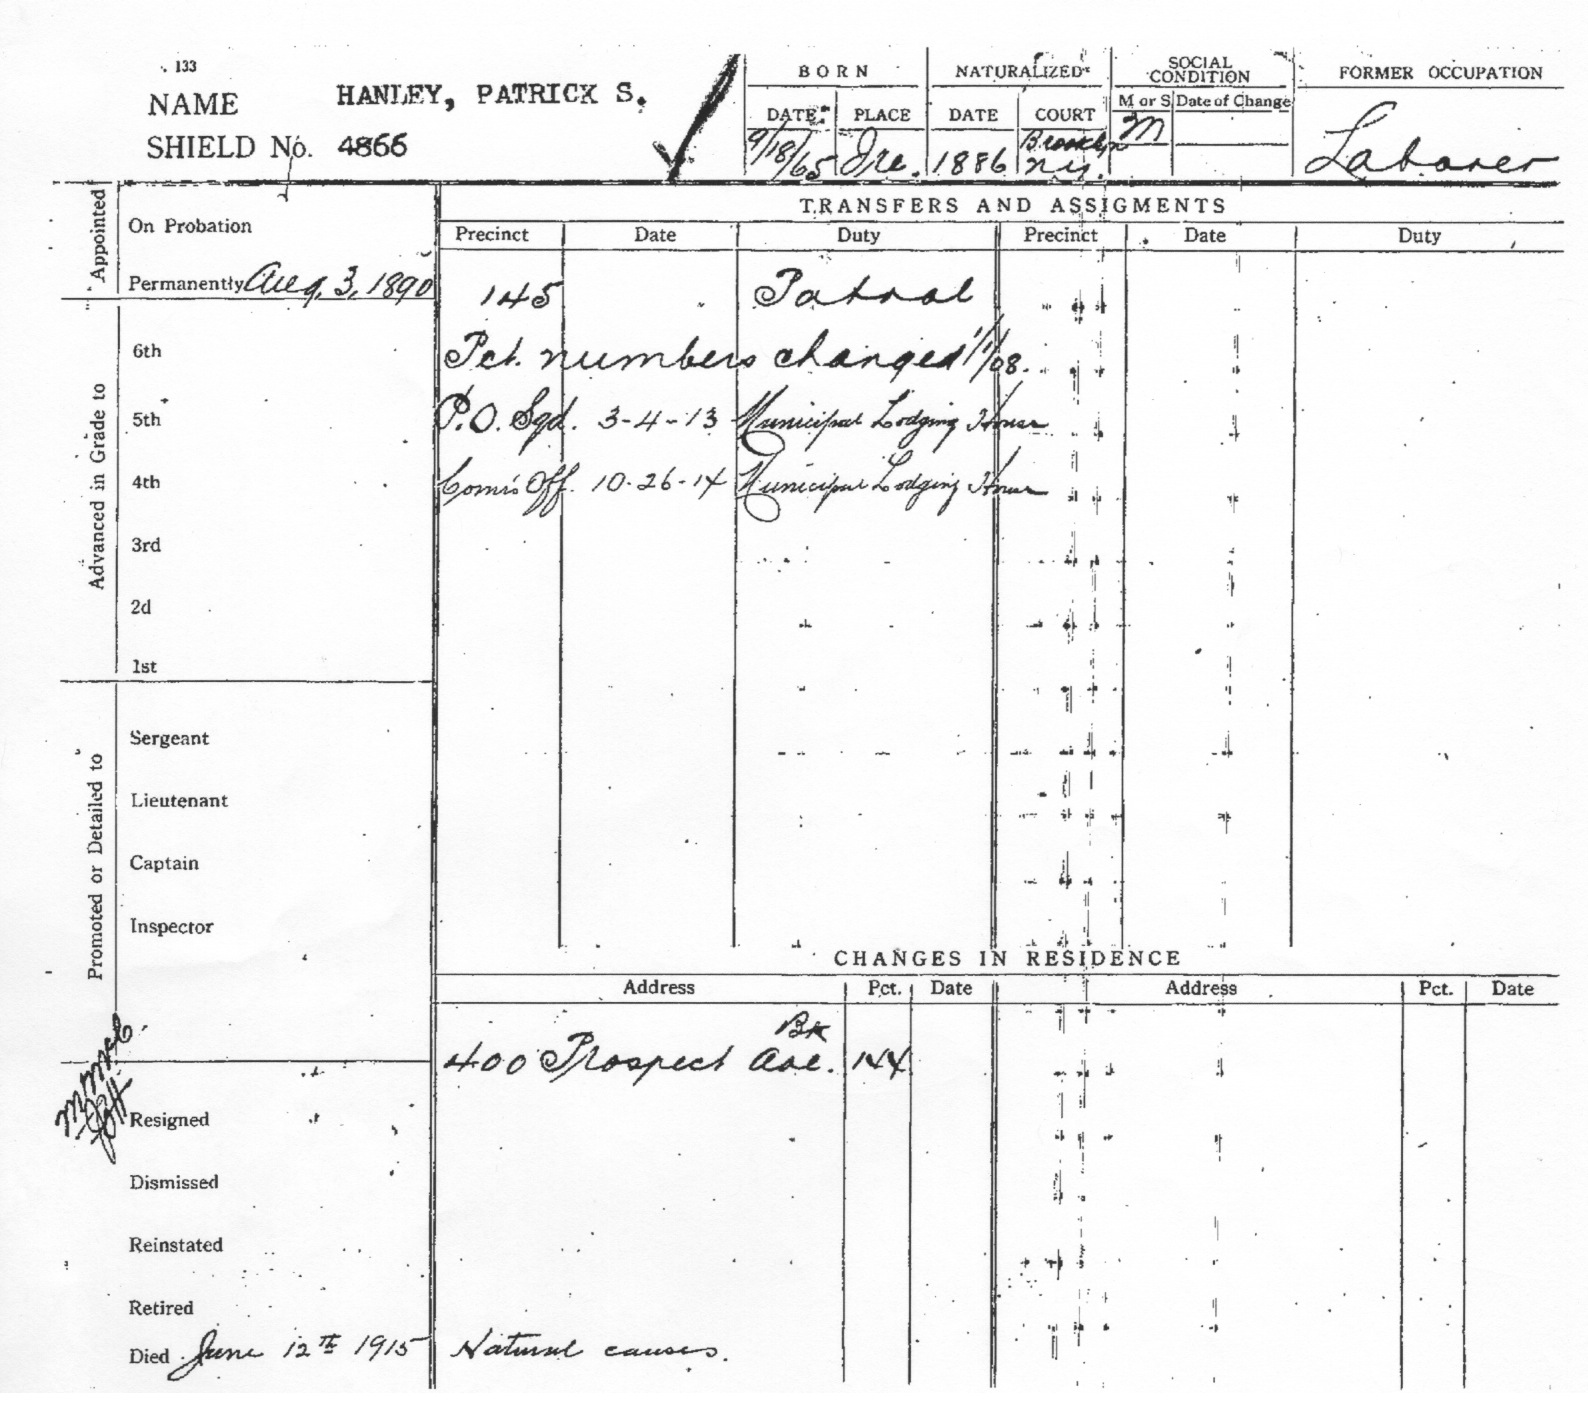 133
NAME HANLEY, PATRICK S.
SHIELD No. 4866
BORN
DATE PLACE
9/18/65 Ire.
NATURALIZED
DATE COURT
1886 Brooklyn N.Y.
SOCIAL CONDITION
M or S Date of Change
M
FORMER OCCUPATION
Laborer
Appointed
On Probation
Permanently Aug. 3, 1890
Advanced in Grade to
6th
5th
4th
3rd
2d
1st
Promoted or Detailed to
Sergeant
Lieutenant
Captain
Inspector
TRANSFERS AND ASSIGMENTS
Precinct Date Duty Precinct Date Duty
145 Patrol
Pct. numbers changed 1/1/08.
P.O. Sqd. 3-4-13 Municipal Lodging House
Com's Off. 10-26-14 Municipal Lodging House
CHANGES IN RESIDENCE
Address Pct. Date Address Pct. Date
Bk
400 Prospect Ave. 144
Resigned
Dismissed
Reinstated
Retired
Died June 12th 1915 Natural causes.